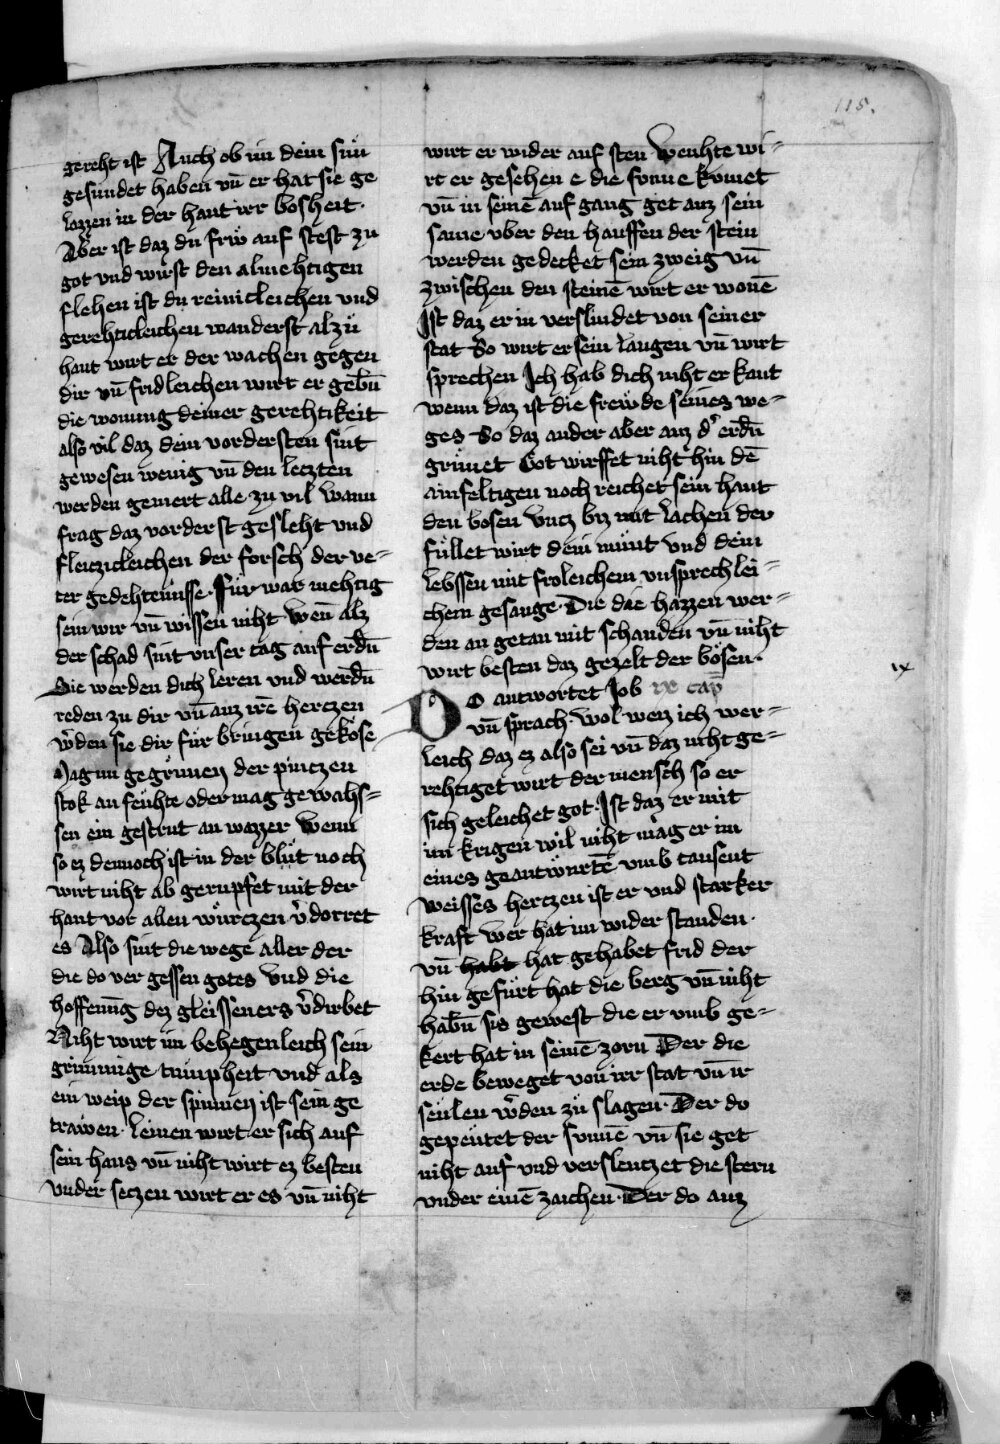 115.
gereht ist Auch ob im dein sün
gesundet haben vn̄ er hat sie ge
lazzen in der hant irr bosheit·
Aber ist daz du frw̓ auf stest zu
got vnd würst den almehtigen
flehen ist du reinicleichen vnd
gerehticleichen wanderst alzü
hant wirt er der wachen gegen
dir vn̄ fridleichen wirt er gebn̄
die wonung deiner gerehtikeit
also vil daz dein vordersten sint
gewesen wenig vn̄ den leczten
werden gemert alle zu vil Wann
frag daz vorderst gesleht vnd
fleiczicleichen der forsch der ve-
ter gedehtenüsse· Für war mehtig
sein wir vn̄ wissen niht Wen̄ alz
der schad sint vnser tag auf erdn̄
Sie werden dich leren vnd werdn̄
reden zu dir vn̄ auz irē herczen
w̓den sie dir für bringen geköse
Mag nu gegrünen der pinczen
stok an feühte oder mag gewahs-
sen ein gestrut an wazzer Wenn
so ez dennoch ist in der blüt noch
wirt niht ab gerupfet mit der
hant vor allen würczen v̓dorret
es Also sint die wege aller der
die do ver gessen gotes Vnd die
hoffenūg dez gleisseners v̓dirbet
Niht wirt im behegenleich sein
grimmige tumpheit vnd als
ein weip der spinnen ist sein ge
träwen· Leinen wirt er sich auf
sein haus vn̄ niht wirt ez besten
vnder seczen wirt er es vn̄ niht
wirt er wider auf sten Weuhte wi-
rt er gesehen e die sonne kumet
vn̄ in seinē auf gang get auz sein
same vber den hauffen der stein
werden gedecket sein zweig vn̄
zwischen den steinē wirt er wonē
Ist daz er in verslindet von seiner
stat So wirt er sein laugen vn̄ wirt
sprechen Ich hab dich niht erkant
wenn daz ist die frewde seines we-
ges So daz ander aber auz d̓ erdn̄
grünet Got wirffet niht hin dē
ainfeltigen noch reichet sein hant
den bosen Vncz biz mit lachen der
füllet wirt dein münt vnd dein
lebssen mit froleichem vnsprechlei-
chem gesange· Die die hazzen wer-
den an getan mit schanden vn̄ niht
wirt besten daz gezelt der bösen·
DO antwortet Job ix cap̄
ix
vn̄ sprach· wol weiz ich wer-
leich daz ez also sei vn̄ daz niht ge-
rehtiget wirt der mensch so er
sich geleichet got· Ist daz er mit
im krigen wil niht mag er im
eines geantwürtē vmb tausent
Weisses herczen ist er vnd starker
kraft wer hat im wider standen·
vn̄ habt hat gehabet frid der
hin gefürt hat die berg vn̄ niht
habn̄ sis gewest die er vmb ge-
kert hat in seinē zorn Der die
erde beweget von irr stat vn̄ ir
seülen w̓den zü slagen· Der do
gepeütet der sunnē vn̄ sie get
niht auf vnd versleutzet die stern
vnder einē zaichen· Der do auz